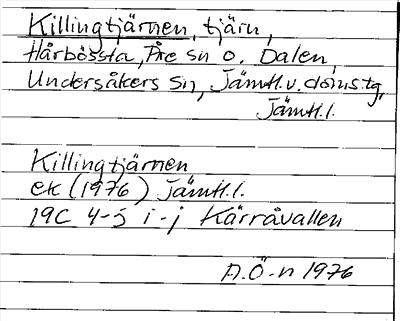 Killingtjärnen, tjärn,
Hårbössta, Åre sn o. Dalen,
Undersåkers sn, Jämtl. v. doms.tg,
Jämtl.l.
Killingtjärnen
ek (1976) Jämtl.l.
19C 4-5 i-j Kärråvallen
A.Ö-n 1976